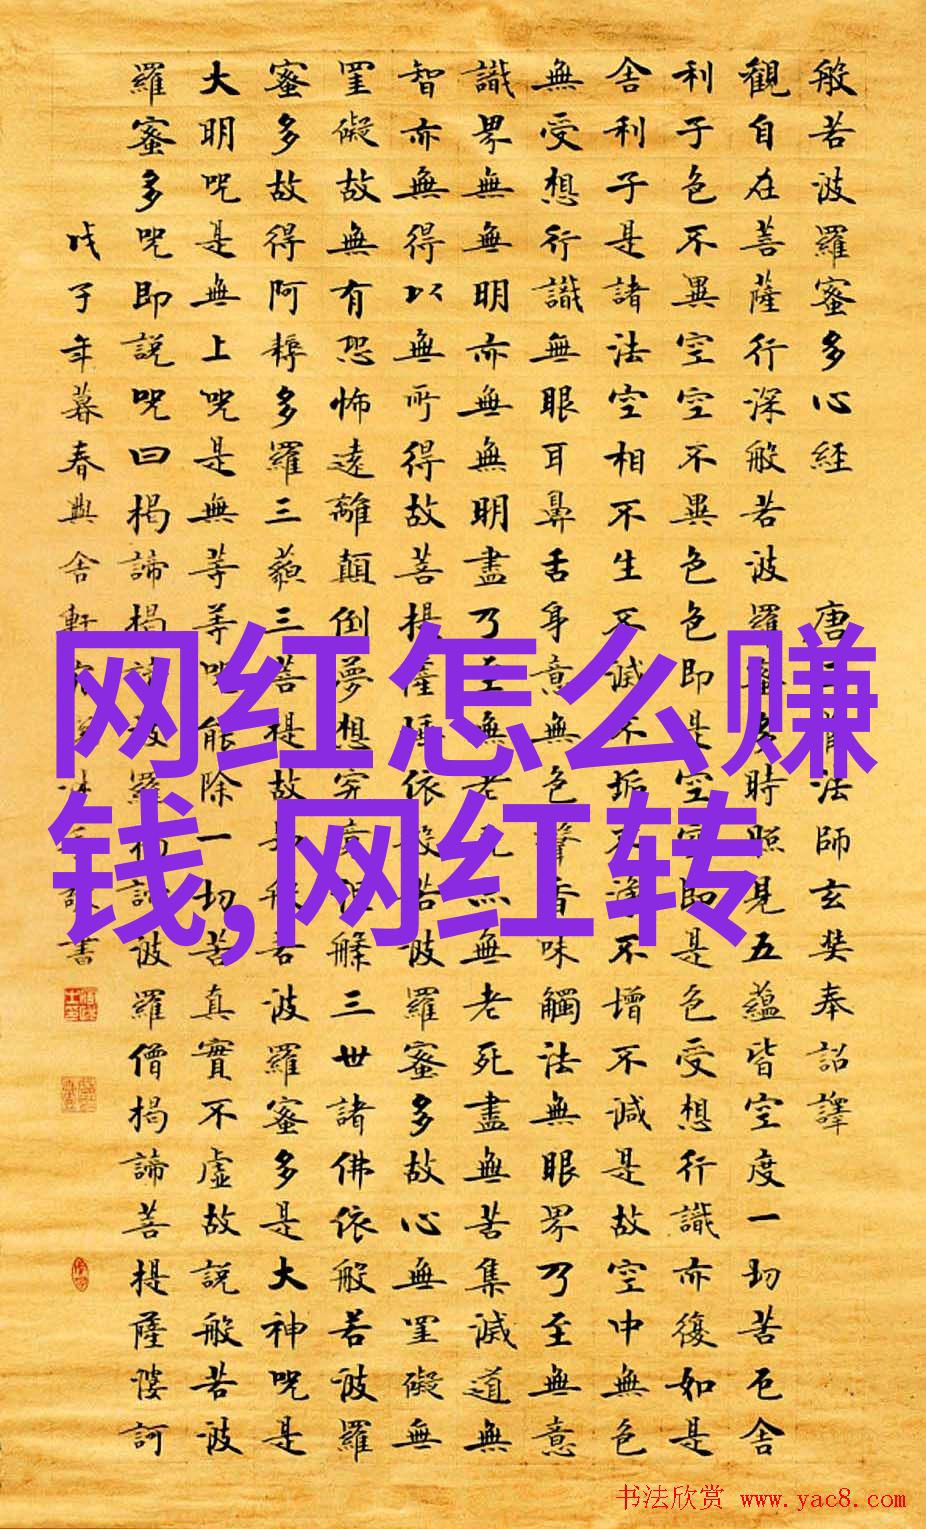 般若波羅蜜多心經 唐三藏法師玄奘奉詔譯
觀自在菩薩行深般若波羅蜜多時照見五蘊皆空度一切苦厄舍
利子色不異空空不異色色即是空空即是色受想行識亦復如是
舍利子是諸法空相不生不滅不垢不淨不增不減是故空中無色
無受想行識無眼耳鼻舌身意無色聲香味觸法無眼界乃至無意
識界無無明亦無無明盡乃至無老死亦無老死盡無苦集滅道無
智亦無得以無所得故菩提薩埵依般若波羅蜜多故心無罣礙無
罣礙故無有恐怖遠離顛倒夢想究竟涅槃三世諸佛依般若波羅
蜜多故得阿耨多羅三藐三菩提故知般若波羅蜜多是大神呪是
大明呪是無上呪是無等等呪能除一切苦真實不虛故說般若波
羅蜜多呪即說呪曰揭諦揭諦波羅揭諦波羅僧揭諦菩提薩婆訶
戊子年暮春興舍軒 書
网红怎么赚
钱,网红转
书法欣赏 www.yac8.com